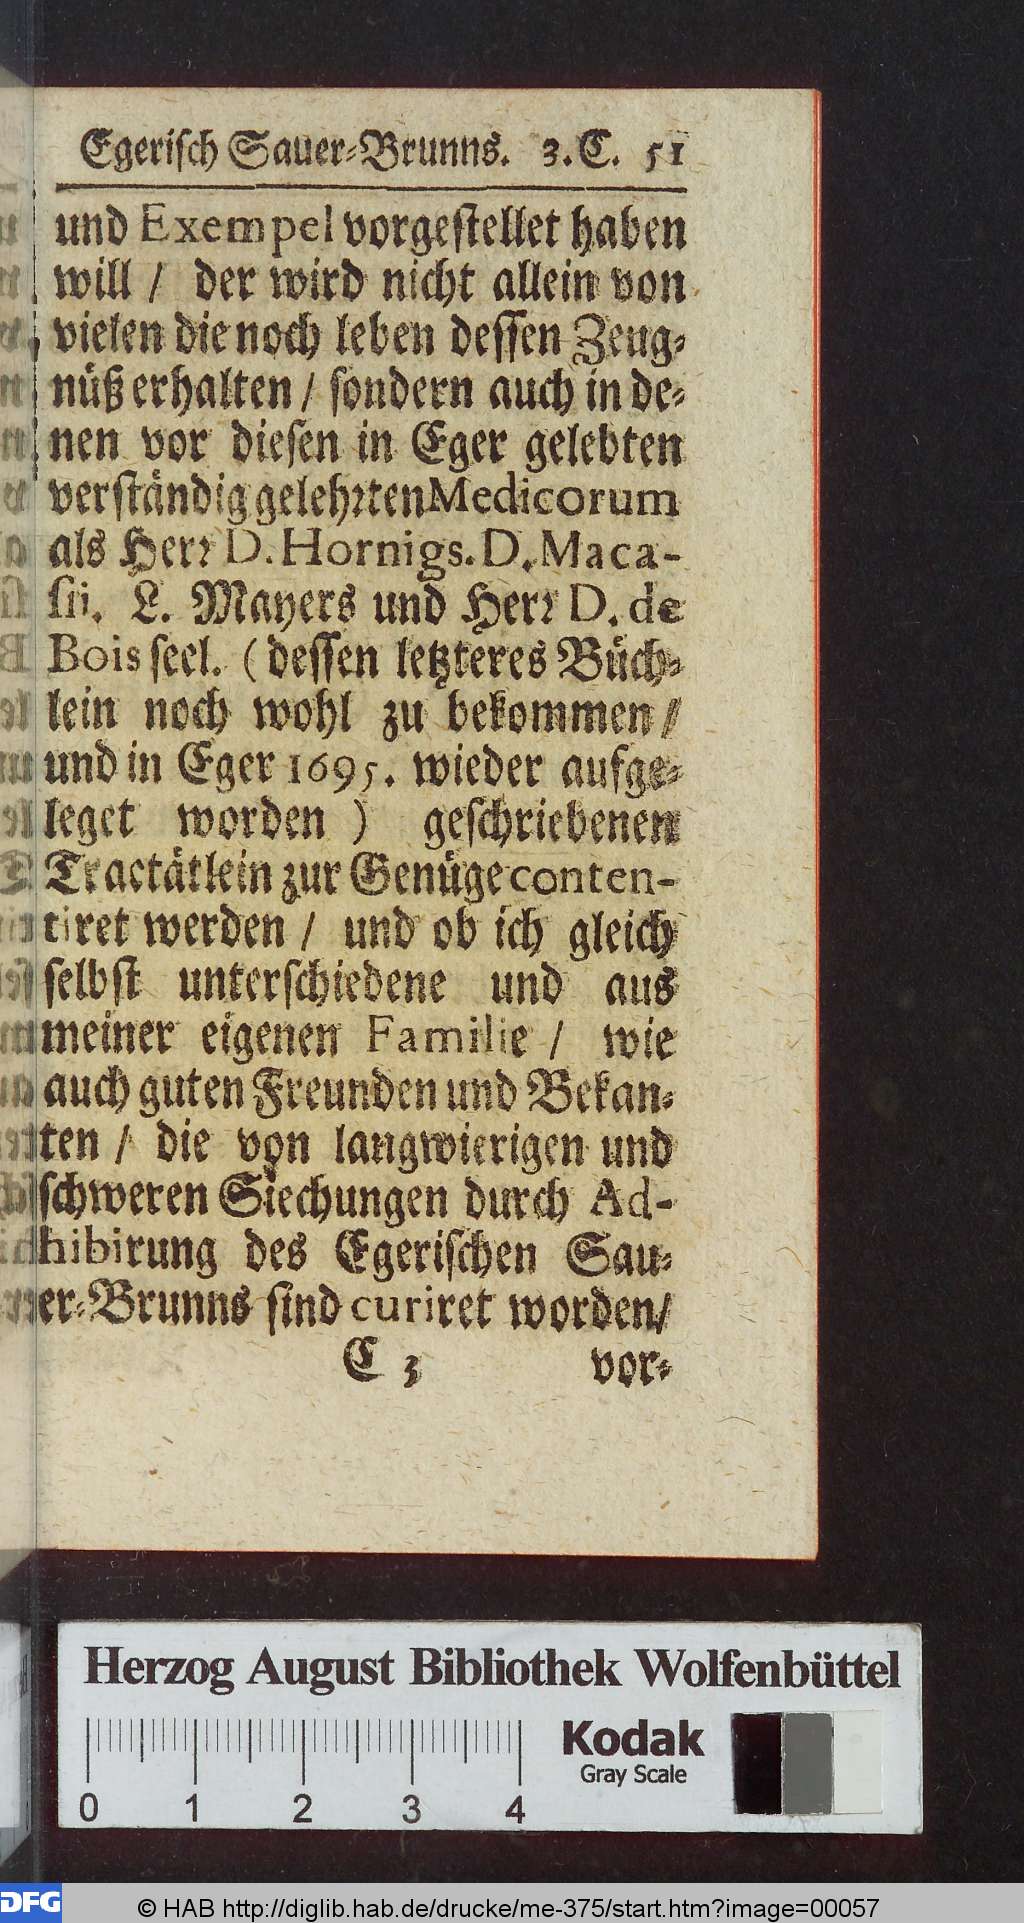 Egerisch Sauer-Brunns. 3. C. 51
und Exempel vorgestellet haben
will / der wird nicht allein von
vielen die noch leben dessen Zeug-
nüß erhalten / sondern auch in de-
nen vor diesen in Eger gelebten
verständig gelehrten Medicorum
als Herr D. Hornigs. D. Maca-
sii. L. Mayers und Herr D. de
Bois seel. ( dessen letzteres Büch-
lein noch wohl zu bekommen /
und in Eger 1695. wieder aufge-
leget worden ) geschriebenen
Tractätlein zur Genüge conten-
tiret werden / und ob ich gleich
selbst unterschiedene und aus
meiner eigenen Familie / wie
auch guten Freunden und Bekan-
ten / die von langwierigen und
schweren Siechungen durch Ad-
hibirung des Egerischen Sau-
er-Brunns sind curiret worden/
C 3 vor-
Herzog August Bibliothek Wolfenbüttel
Kodak
Gray Scale
0 1 2 3 4
DFG
© HAB http://diglib.hab.de/drucke/me-375/start.htm?image=00057